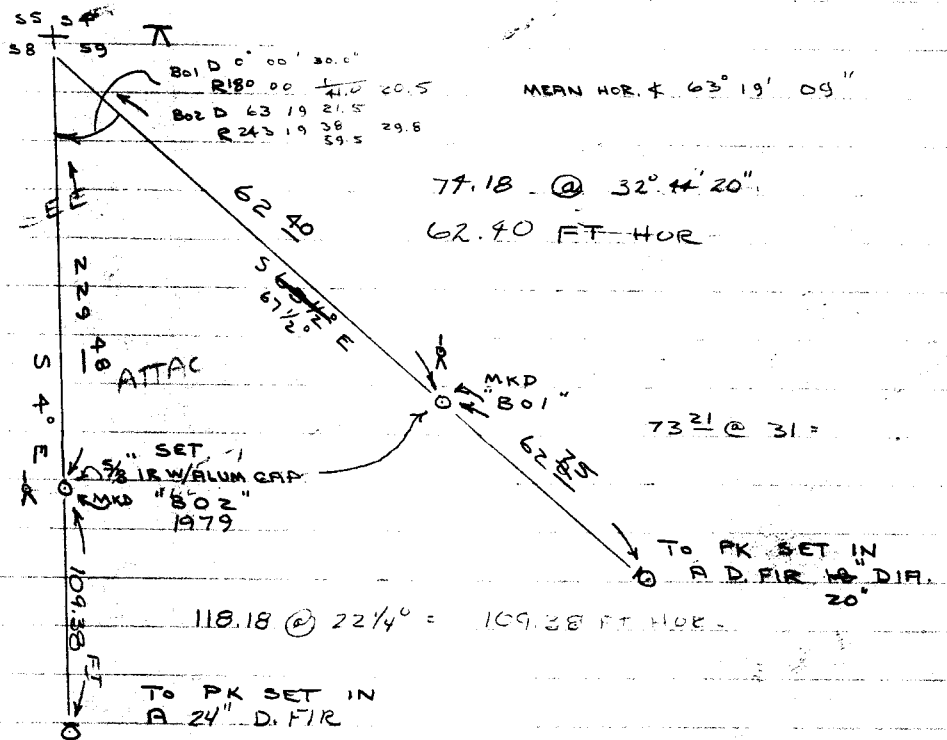 S5 S4
S8 S9
π
BO1 D 0° 00' 30.0"
R180 00 11.0 20.5
BO2 D 63 19 21.5
R 243 19 38 29.8
59.5
MEAN HOR. ∡ 63° 19' 09"
74.18 @ 32° 44' 20"
62.40 FT HOR
62 40
S 67 1/2° E
229 48
S 4° E
ATTAC
MKD
"BO1"
73 21 @ 31 =
62 35
SET
5/8" IR W/ALUM CAP
MKD "BO2"
1979
TO PK SET IN
A D. FIR DIA.
20"
109.38 FT
118.18 @ 22 1/4° = 109.38 FT HOR.
TO PK SET IN
A 24" D. FIR